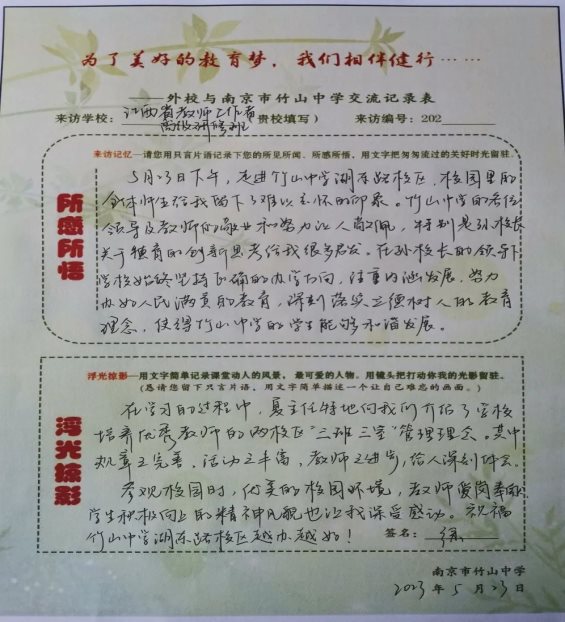 为了美好的教育梦，我们相伴健行……
——外校与南京市竹山中学交流记录表
来访学校：江西省教师工作者高级研修班 贵校填写） 来访编号：202
来访记忆—请您用只言片语记录下您的所见所闻、所感所悟，用文字把匆匆流过的美好时光留驻。
所感所悟
5月23日下午，走进竹山中学湖东路校区，校园里的
全体师生给我留下了难以忘怀的印象。竹山中学的各位
领导及教师们的敬业和努力让人敬佩，特别是孙校长
关于德育的创新思考给我很多启发。在孙校长的领导下
学校始终坚持正确的办学方向，注重内涵发展，努力
办好人民满意的教育，深刻落实立德树人的教育
理念，使得竹山中学的学生能够和谐发展。
浮光掠影—用文字简单记录课堂动人的风景，最可爱的人物。用镜头把打动你我的光影留驻。
（恳请您留下只言片语，用文字简单描述一个让自己难忘的画面。）
浮光掠影
在学习的过程中，夏主任特地向我们介绍了学校
培养优秀教师的两校区“三班三室”管理理念。其中
规章之完善，活动之丰富，教师之进步，给人深刻体会。
参观校园时，优美的校园环境，教师爱岗奉献，
学生积极向上的精神风貌也让我深受感动。祝福
竹山中学湖东路校区越办越好！ 签名：
南京市竹山中学
2023年5月23日